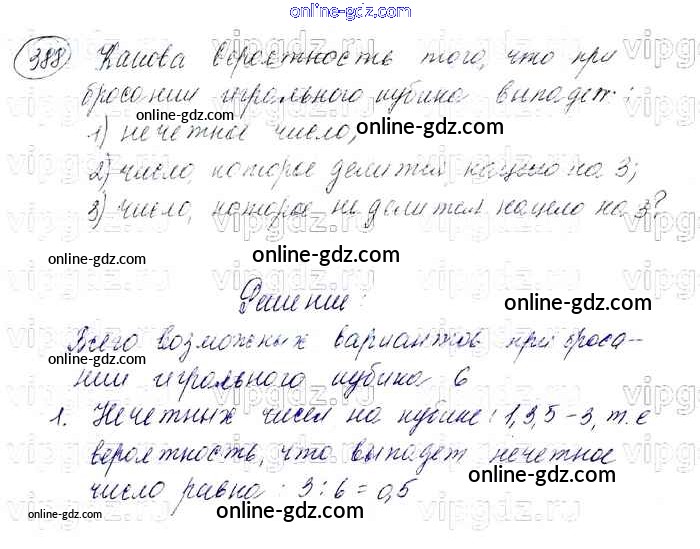 online-gdz.com
388 Какова вероятность того, что при
online-gdz.com
бросании игрального кубика выпадет:
online-gdz.com
1) нечетное число;
2) число, которое делится нацело на 3;
online-gdz.com
3) число, которое не делится нацело на 3?
online-gdz.com
online-gdz.com
Решение:
online-gdz.com
Всего возможных вариантов при броса-
online-gdz.com
нии игрального кубика 6
online-gdz.com
1. Нечетных чисел на кубике: 1,3,5 – 3, т.е
online-gdz.com
вероятность, что выпадет нечетное
online-gdz.com
число равна: 3:6=0,5
online-gdz.com
online-gdz.com